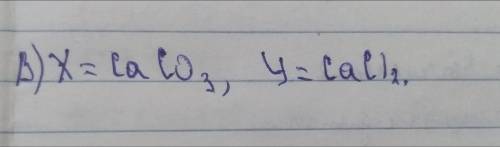 В) X = CaCO₃, У = CaCl₂.